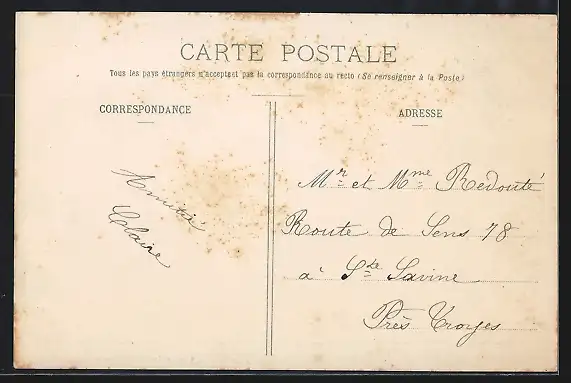 CARTE POSTALE
Tous les pays étrangers n'acceptent pas la correspondance au recto (Se renseigner à la Poste)
CORRESPONDANCE
ADRESSE
Amitié
Claire
Mr et Mme Redouté
Route de Sens 78
à Ste Savine
Près Troyes